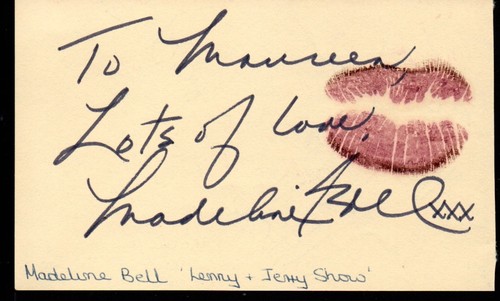 To Maureen,
Lots of love,
Madeline Bell xxx
Madeline Bell 'Lenny + Jerry Show'